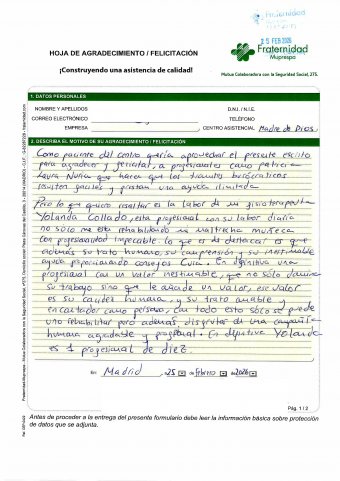 Fraternidad
25 FEB 2026
HOJA DE AGRADECIMIENTO / FELICITACIÓN
Fraternidad
Muprespa
¡Construyendo una asistencia de calidad!
Mutua Colaboradora con la Seguridad Social, 275.
1. DATOS PERSONALES
NOMBRE Y APELLIDOS
D.N.I. / N.I.E.
CORREO ELECTRÓNICO
TELÉFONO
EMPRESA
, CENTRO ASISTENCIAL Madre de Dios.
2. DESCRIBA EL MOTIVO DE SU AGRADECIMIENTO / FELICITACIÓN
Como paciente del centro quería aprovechar el presente escrito
para agradecer y felicitar, a profesionales como patricia
Laura Nuria que hacen que los tramites burocráticos
resulten faciles y prestan una ayuda ilimitada
Pero lo que quiero resaltar es la labor de mi fisioterapeuta
Yolanda Collado, esta profesional con su labor diaria
no solo me esta rehabilitando mi maltrecha muñeca
con profesionalidad impecable lo que es de destacar es que
además su trato humano, su comprensión y su inestimable
ayuda proporcionando consejos Es una. En definitiva
profesional con un valor inestimable, que no sólo domina
su trabajo sino que le añade un valor, ese valor
es su calidez humana, y su trato amable y
encantador como persona, con todo esto solo se puede
uno rehabilitar pero además disfrutar de una compañía
humana agradable y profesional. En definitiva Yolanda
es 1 profesional de diez.
En Madrid , a 25 de febrero de 2026
Pág. 1 / 2
Antes de proceder a la entrega del presente formulario debe leer la información básica sobre protección
de datos que se adjunta.